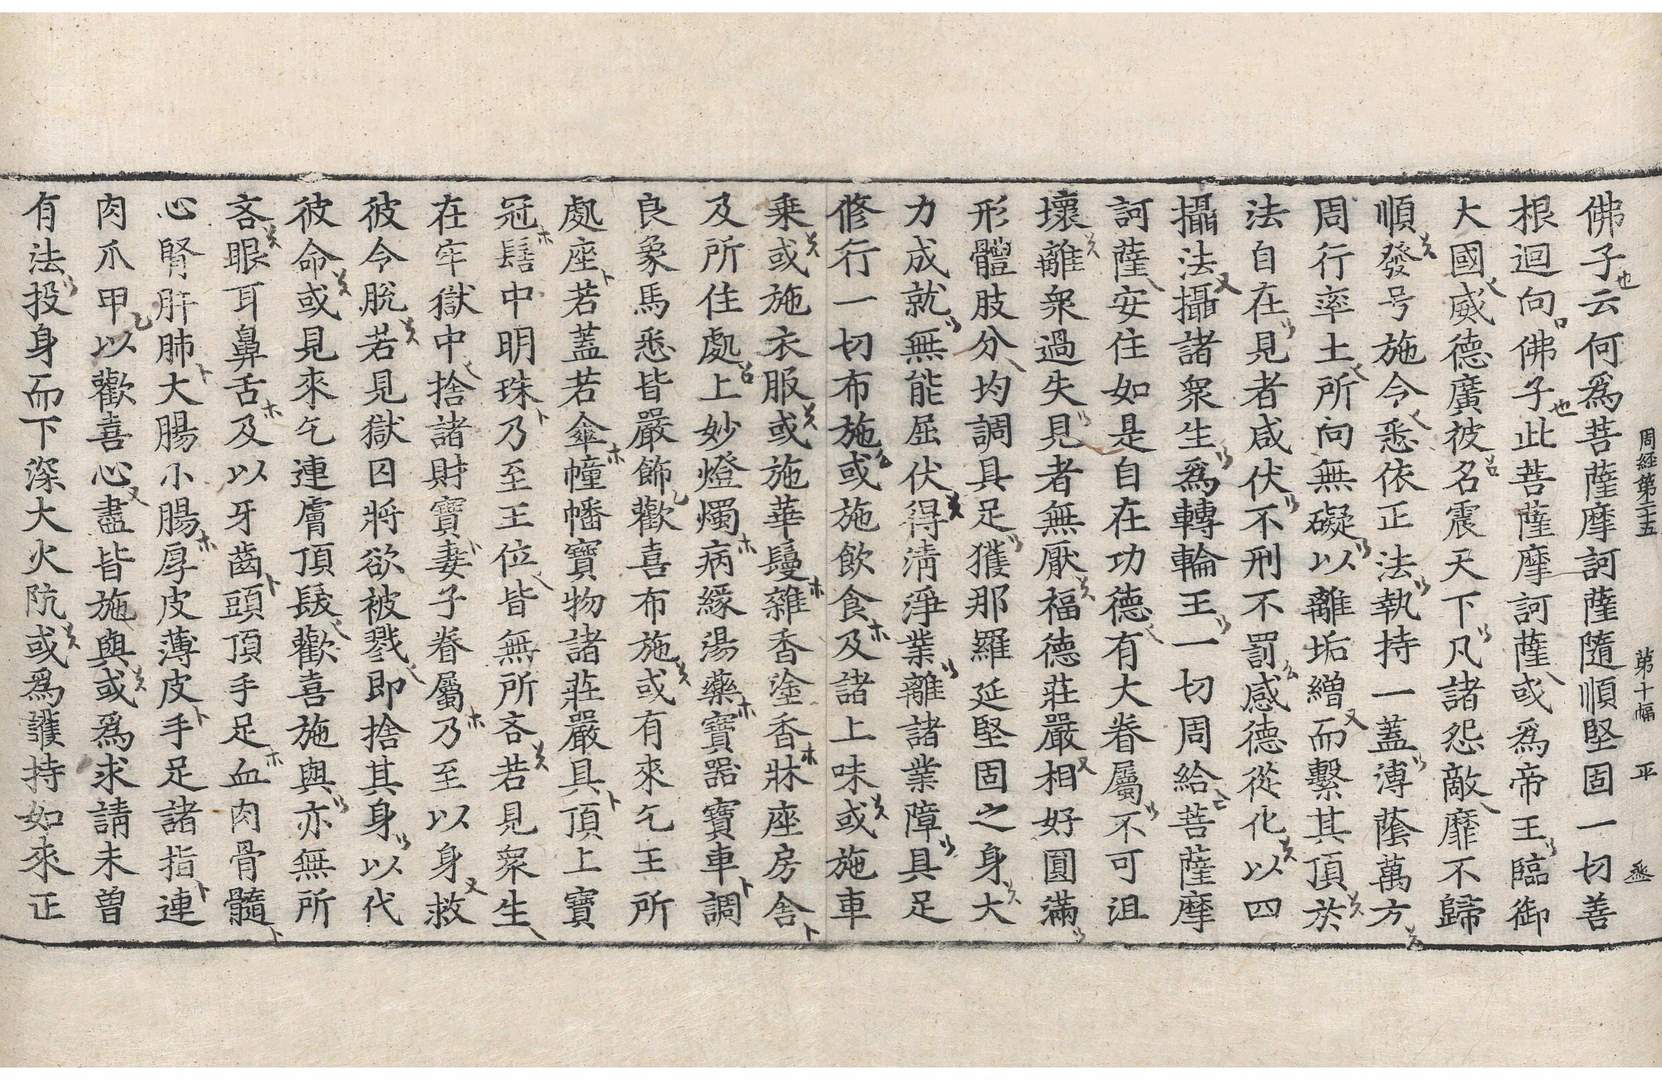 周経第二十五 第十幅 平
佛子云何爲菩薩摩訶薩隨順堅固一切善
根迴向佛子此菩薩摩訶薩或爲帝王臨御
大國威德廣被名震天下凡諸怨敵靡不歸
順發号施令悉依正法執持一蓋溥蔭萬方
周行率土所向無礙以離垢繒而繫其頂於
法自在見者咸伏不刑不罰感德從化以四
攝法攝諸衆生爲轉輪王一切周給菩薩摩
訶薩安住如是自在功德有大眷屬不可沮
壞離衆過失見者無厭福德莊嚴相好圓滿
形體肢分均調具足獲那羅延堅固之身大
力成就無能屈伏得清淨業離諸業障具足
修行一切布施或施飲食及諸上味或施車
乗或施衣服或施華鬘雜香塗香牀座房舍
及所住處上妙燈燭病緣湯藥寶器寶車調
良象馬悉皆嚴飾歡喜布施或有來乞王所
處座若蓋若傘幢幡寶物諸莊嚴具頂上寶
冠髻中明珠乃至王位皆無所吝若見衆生
在牢獄中捨諸財寶妻子眷屬乃至以身救
彼令脱若見獄囚將欲被戮即捨其身以代
彼命或見來乞連膚頂髮歡喜施與亦無所
吝眼耳鼻舌及以牙齒頭頂手足血肉骨髓
心腎肝肺大腸小腸厚皮薄皮手足諸指連
肉爪甲以歡喜心盡皆施與或爲求請未曾
有法投身而下深大火阬或爲護持如來正